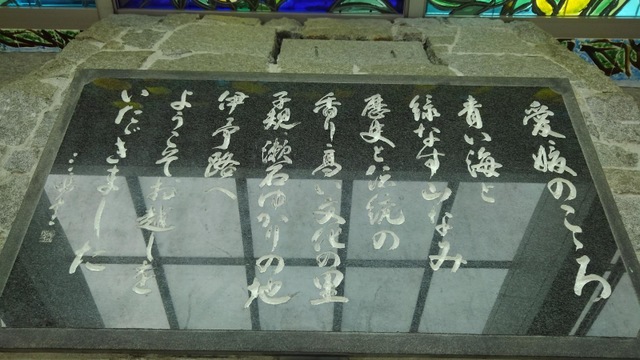 愛媛のこころ
青い海と
緑なす山なみ
歴史と伝統の
香り高い文化の里
子規漱石ゆかりの地
伊予路へ
ようこそお越しを
いただきました